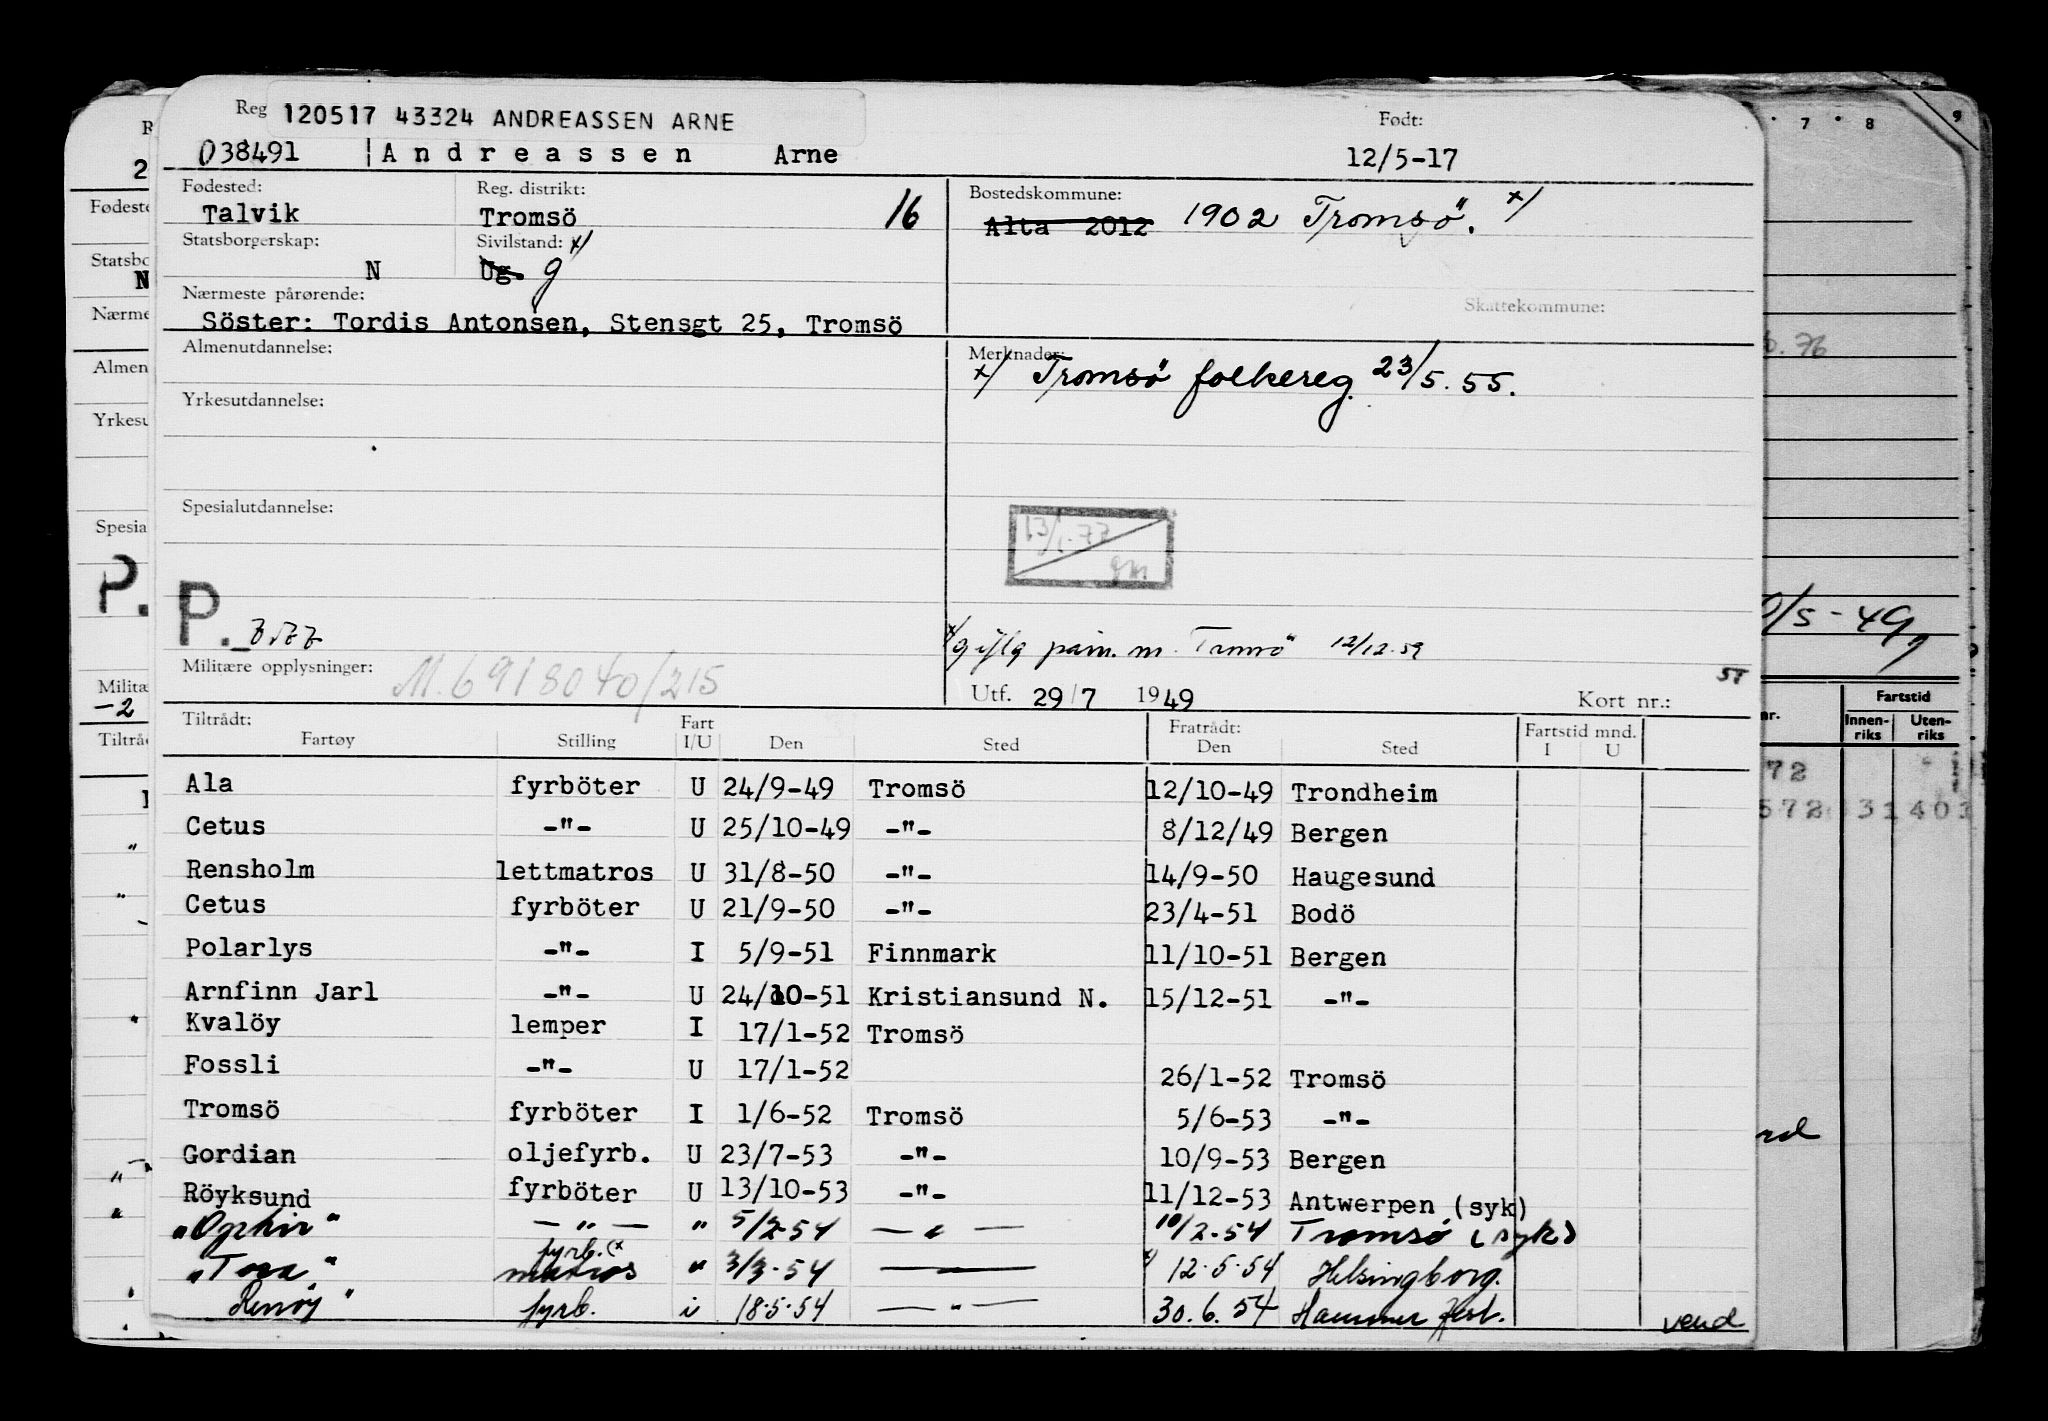 Reg
120517 43324 ANDREASSEN ARNE
Født:
038491 Andreassen Arne 12/5-17
Fødested: Reg. distrikt: Bostedskommune:
Talvik Tromsö 16 Alta 2012 1902 Tromsö. x/
Statsborgerskap: Sivilstand: x/
N Ug. g
Nærmeste pårørende: Skattekommune:
Söster: Tordis Antonsen, Stensgt 25, Tromsö
Almenutdannelse: Merknader:
x/ Tromsö folkereg. 23/5.55.
Yrkesutdannelse:
Spesialutdannelse:
13/1-77
gm
P.
x/g iflg påm. m. Tromsö 12/12.59
Militære opplysninger: M.6918040/215
Utf. 29/7 1949 Kort nr.:
Tiltrådt: Fart Fratrådt: Fartstid mnd.
Fartøy Stilling I/U Den Sted Den Sted I U
Ala fyrböter U 24/9-49 Tromsö 12/10-49 Trondheim
Cetus -"- U 25/10-49 -"- 8/12/49 Bergen
Rensholm lettmatros U 31/8-50 -"- 14/9-50 Haugesund
Cetus fyrböter U 21/9-50 -"- 23/4-51 Bodö
Polarlys -"- I 5/9-51 Finnmark 11/10-51 Bergen
Arnfinn Jarl -"- U 24/10-51 Kristiansund N. 15/12-51 -"-
Kvalöy lemper I 17/1-52 Tromsö
Fossli -"- U 17/1-52 26/1-52 Tromsö
Tromsö fyrböter I 1/6-52 Tromsö 5/6-53 -"-
Gordian oljefyrb. U 23/7-53 -"- 10/9-53 Bergen
Röyksund fyrböter U 13/10-53 -"- 11/12-53 Antwerpen (syk)
"Ophir" -"- " 5/2-54 -"- 10/2-54 Tromsö (syk)
fyrb. (x
"Tora" matros " 3/3-54 — x/ 12.5.54 Helsingborg.
Renöy" fyrb. i 18.5.54 -"- 30.6.54 Hammerfest.
vend
Fødeste
Statsbo
N
Nærme
Almen
Yrkesu
Spesia
P.
Milita
-2
Tiltrå
7 8 9
76
/5-49
Fartstid
nr. Innen-riks Uten-riks
72
572 31 401